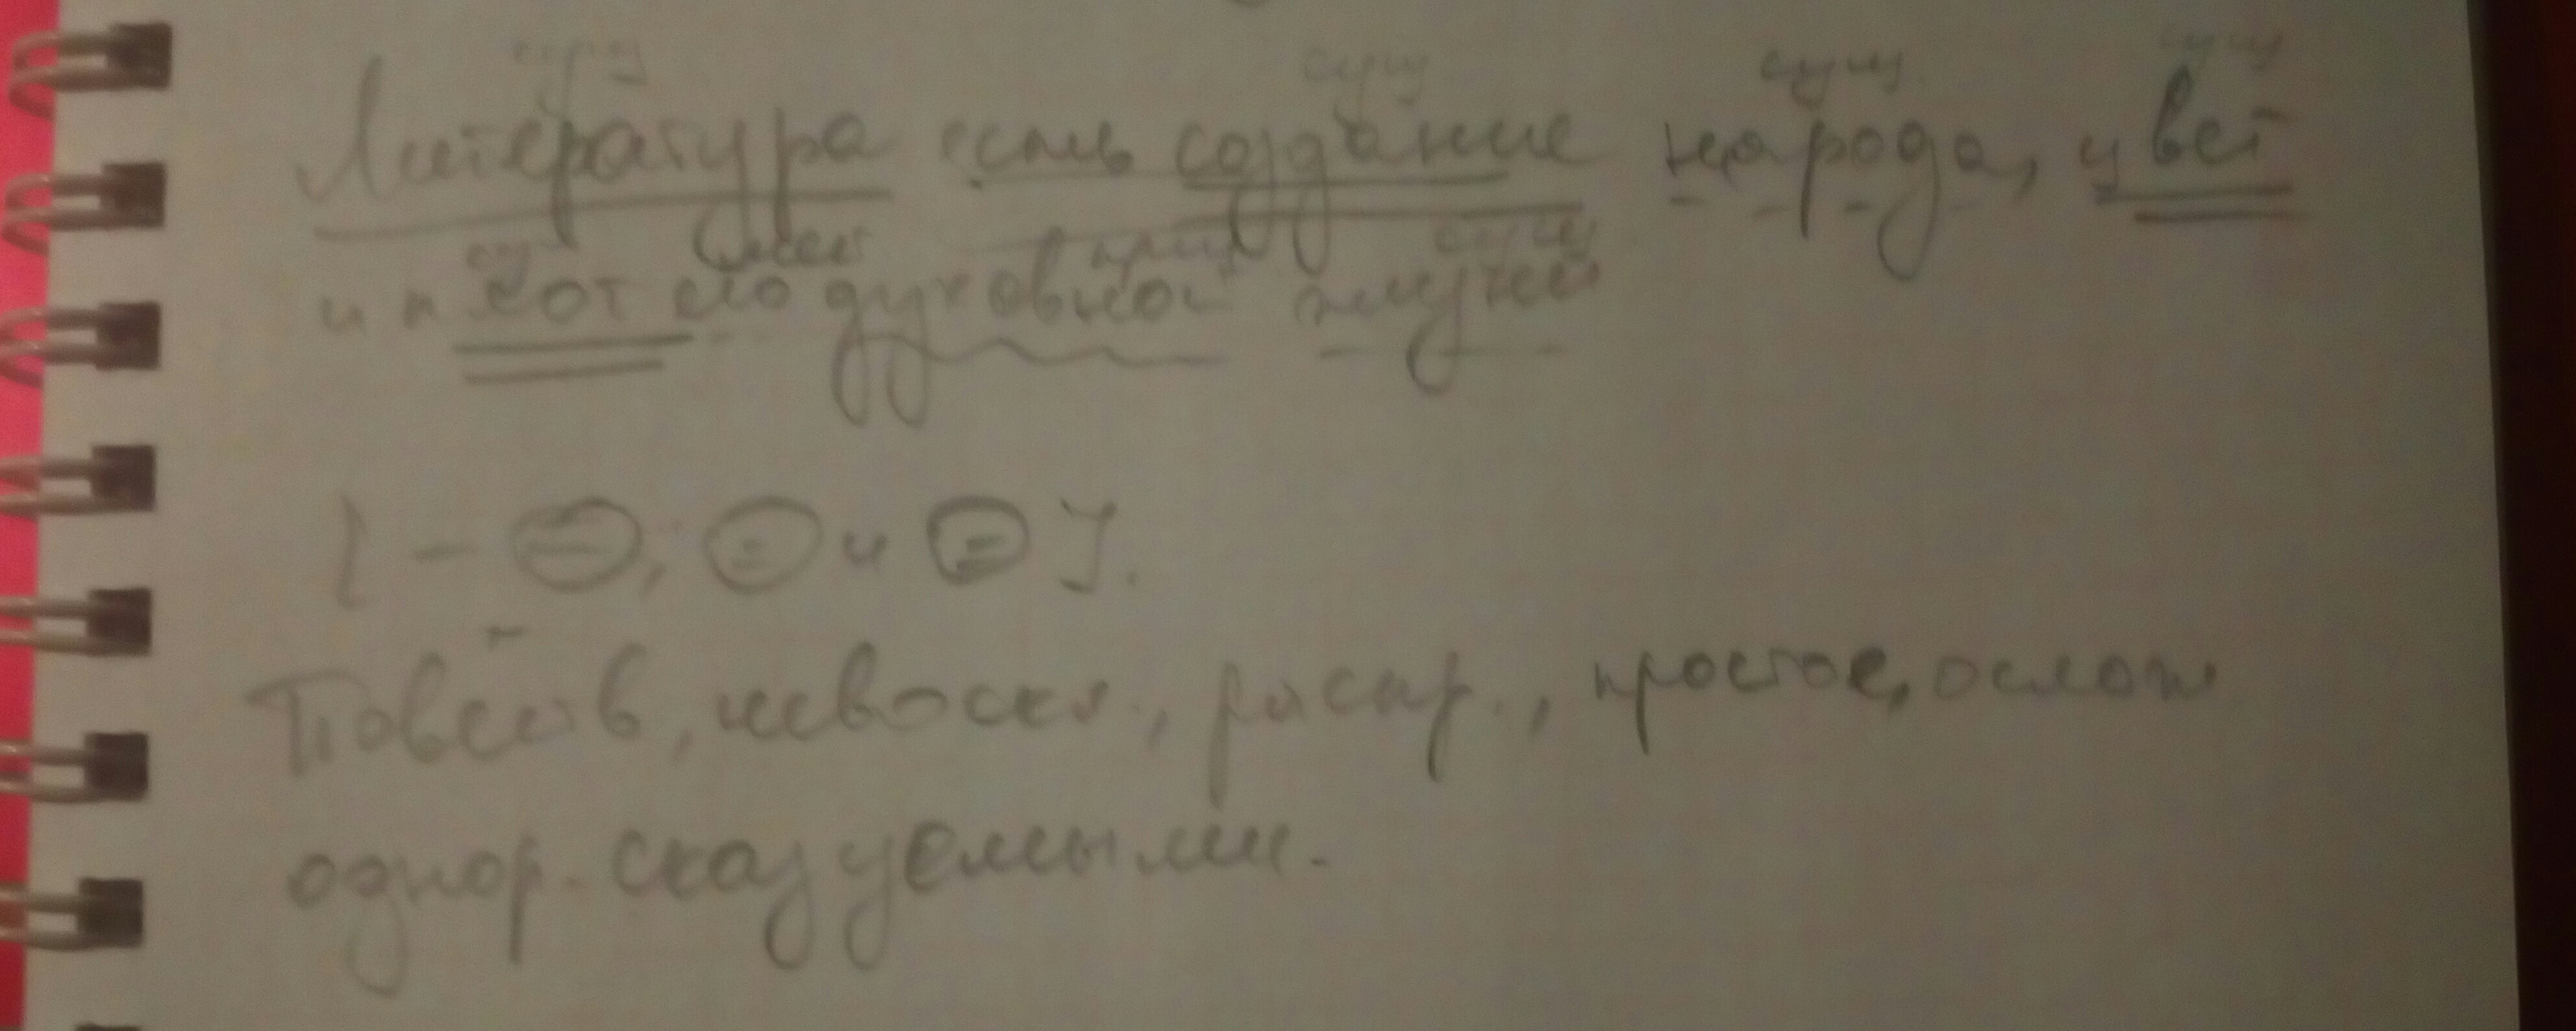 сущ сущ сущ сущ
Литература есть создание народа, цвет
сущ мест прил сущ
и плот его духовной жизни
[ — ⊜, ⊜ и ⊜ ].
Повеств, невоскл., распр., простое, ослож
однор. сказуемыми.